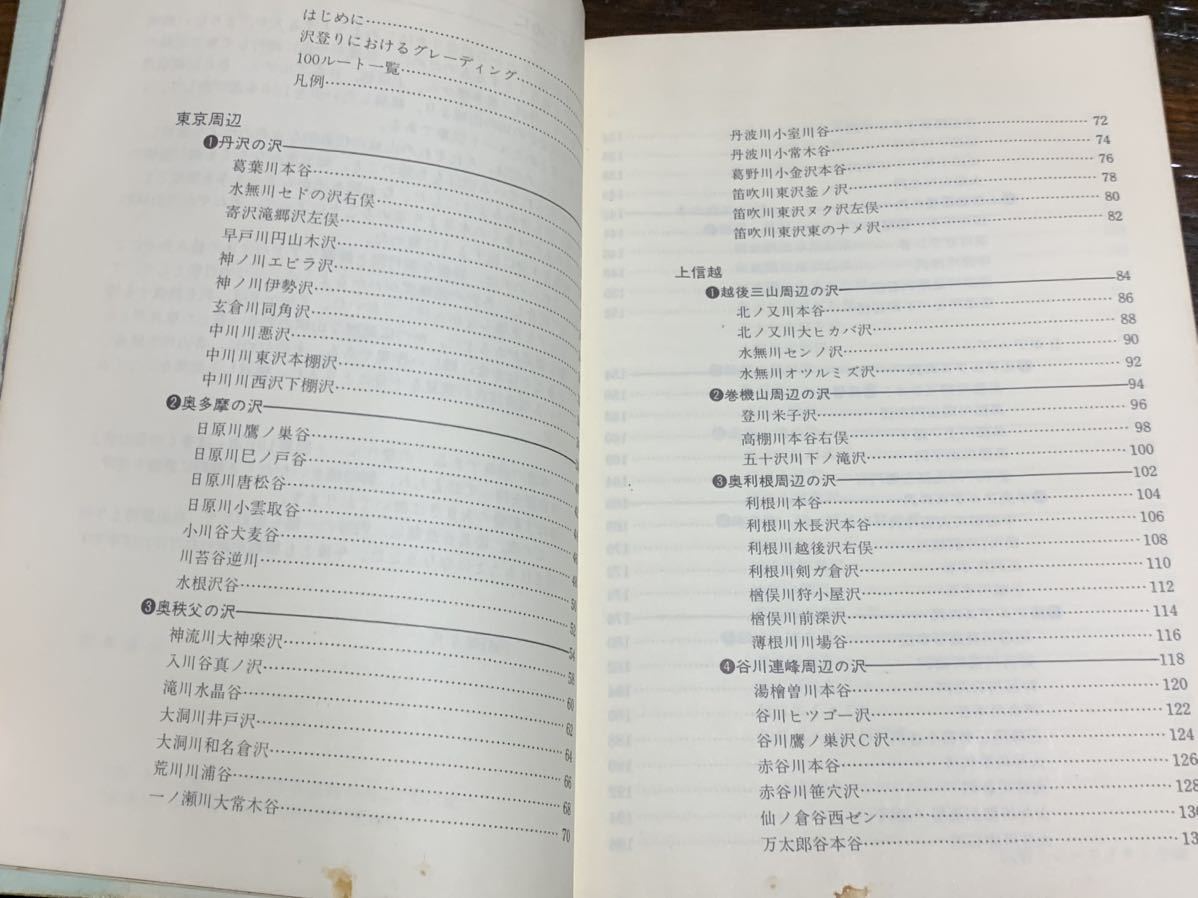 はじめに
沢登りにおけるグレーディング
100ルート一覧
凡例
東京周辺
❶丹沢の沢
葛葉川本谷
水無川セドの沢右俣
寄沢滝郷沢左俣
早戸川円山木沢
神ノ川エビラ沢
神ノ川伊勢沢
玄倉川同角沢
中川川悪沢
中川川東沢本棚沢
中川川西沢下棚沢
❷奥多摩の沢
日原川鷹ノ巣谷
日原川巳ノ戸谷
日原川唐松谷
日原川小雲取谷
小川谷犬麦谷
川苔谷逆川
水根沢谷 50
❸奥秩父の沢 52
神流川大神楽沢 54
入川谷真ノ沢 58
滝川水晶谷 60
大洞川井戸沢 62
大洞川和名倉沢 64
荒川川浦谷 66
一ノ瀬川大常木谷 68
70
丹波川小室川谷 72
丹波川小常木谷 74
葛野川小金沢本谷 76
笛吹川東沢釜ノ沢 78
笛吹川東沢ヌク沢左俣 80
笛吹川東沢東のナメ沢 82
上信越
❶越後三山周辺の沢 84
北ノ又川本谷 86
北ノ又川大ヒカバ沢 88
水無川センノ沢 90
水無川オツルミズ沢 92
❷巻機山周辺の沢 94
登川米子沢 96
高棚川本谷右俣 98
五十沢川下ノ滝沢 100
❸奥利根周辺の沢 102
利根川本谷 104
利根川水長沢本谷 106
利根川越後沢右俣 108
利根川剣ガ倉沢 110
楢俣川狩小屋沢 112
楢俣川前深沢 114
薄根川川場谷 116
❹谷川連峰周辺の沢 118
湯檜曽川本谷 120
谷川ヒツゴー沢 122
谷川鷹ノ巣沢C沢 124
赤谷川本谷 126
赤谷川笹穴沢 128
仙ノ倉谷西ゼン
万太郎谷本谷